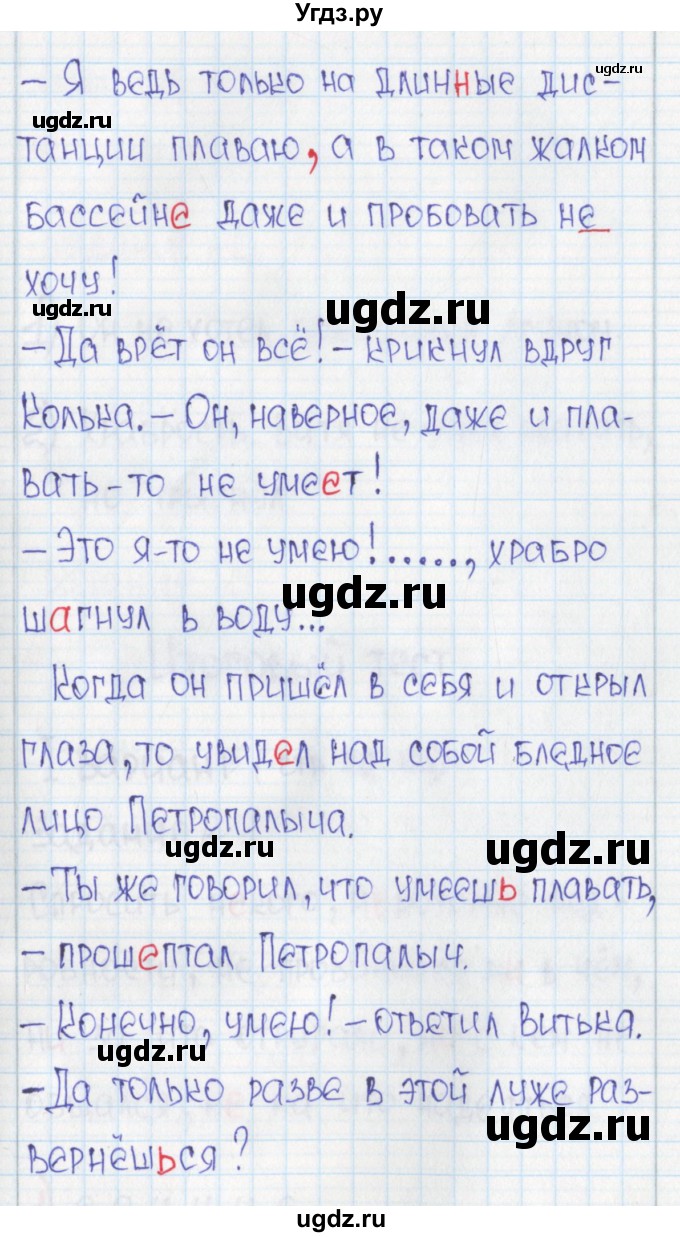 Угдз.ру
– Я ведь только на длинные дис-
танции плаваю, а в таком жалком
бассейне даже и пробовать не
хочу!
– Да врёт он всё! – крикнул вдруг
Колька. – Он, наверное, даже и пла-
вать-то не умеет!
– Это я-то не умею!......, храбро
шагнул в воду...
Когда он пришёл в себя и открыл
глаза, то увидел над собой бледное
лицо Петропалыча.
– Ты же говорил, что умеешь плавать,
– прошептал Петропалыч.
– Конечно, умею! – ответил Витька.
– Да только разве в этой луже раз-
вернёшься?
ugdz.ru
ugdz.ru
ugdz.ru
ugdz.ru
ugdz.ru
ugdz.ru
ugdz.ru
ugdz.ru
ugdz.ru
ugdz.ru
ugdz.ru
ugdz.ru